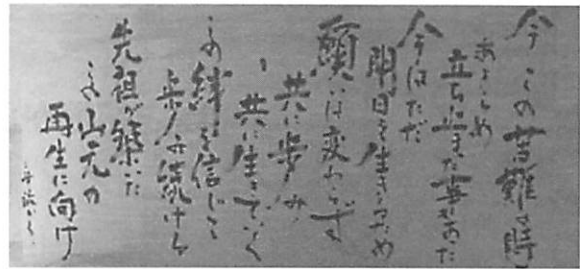 今この苦難の時
あきらめ
立ち止まった事もあった
今はただ
明日を生きるため
願いは変わらずも
共に歩み
共に生きていく
この絆を信じて
歩み続ける
先祖が築いた
この山元の
再生に向け